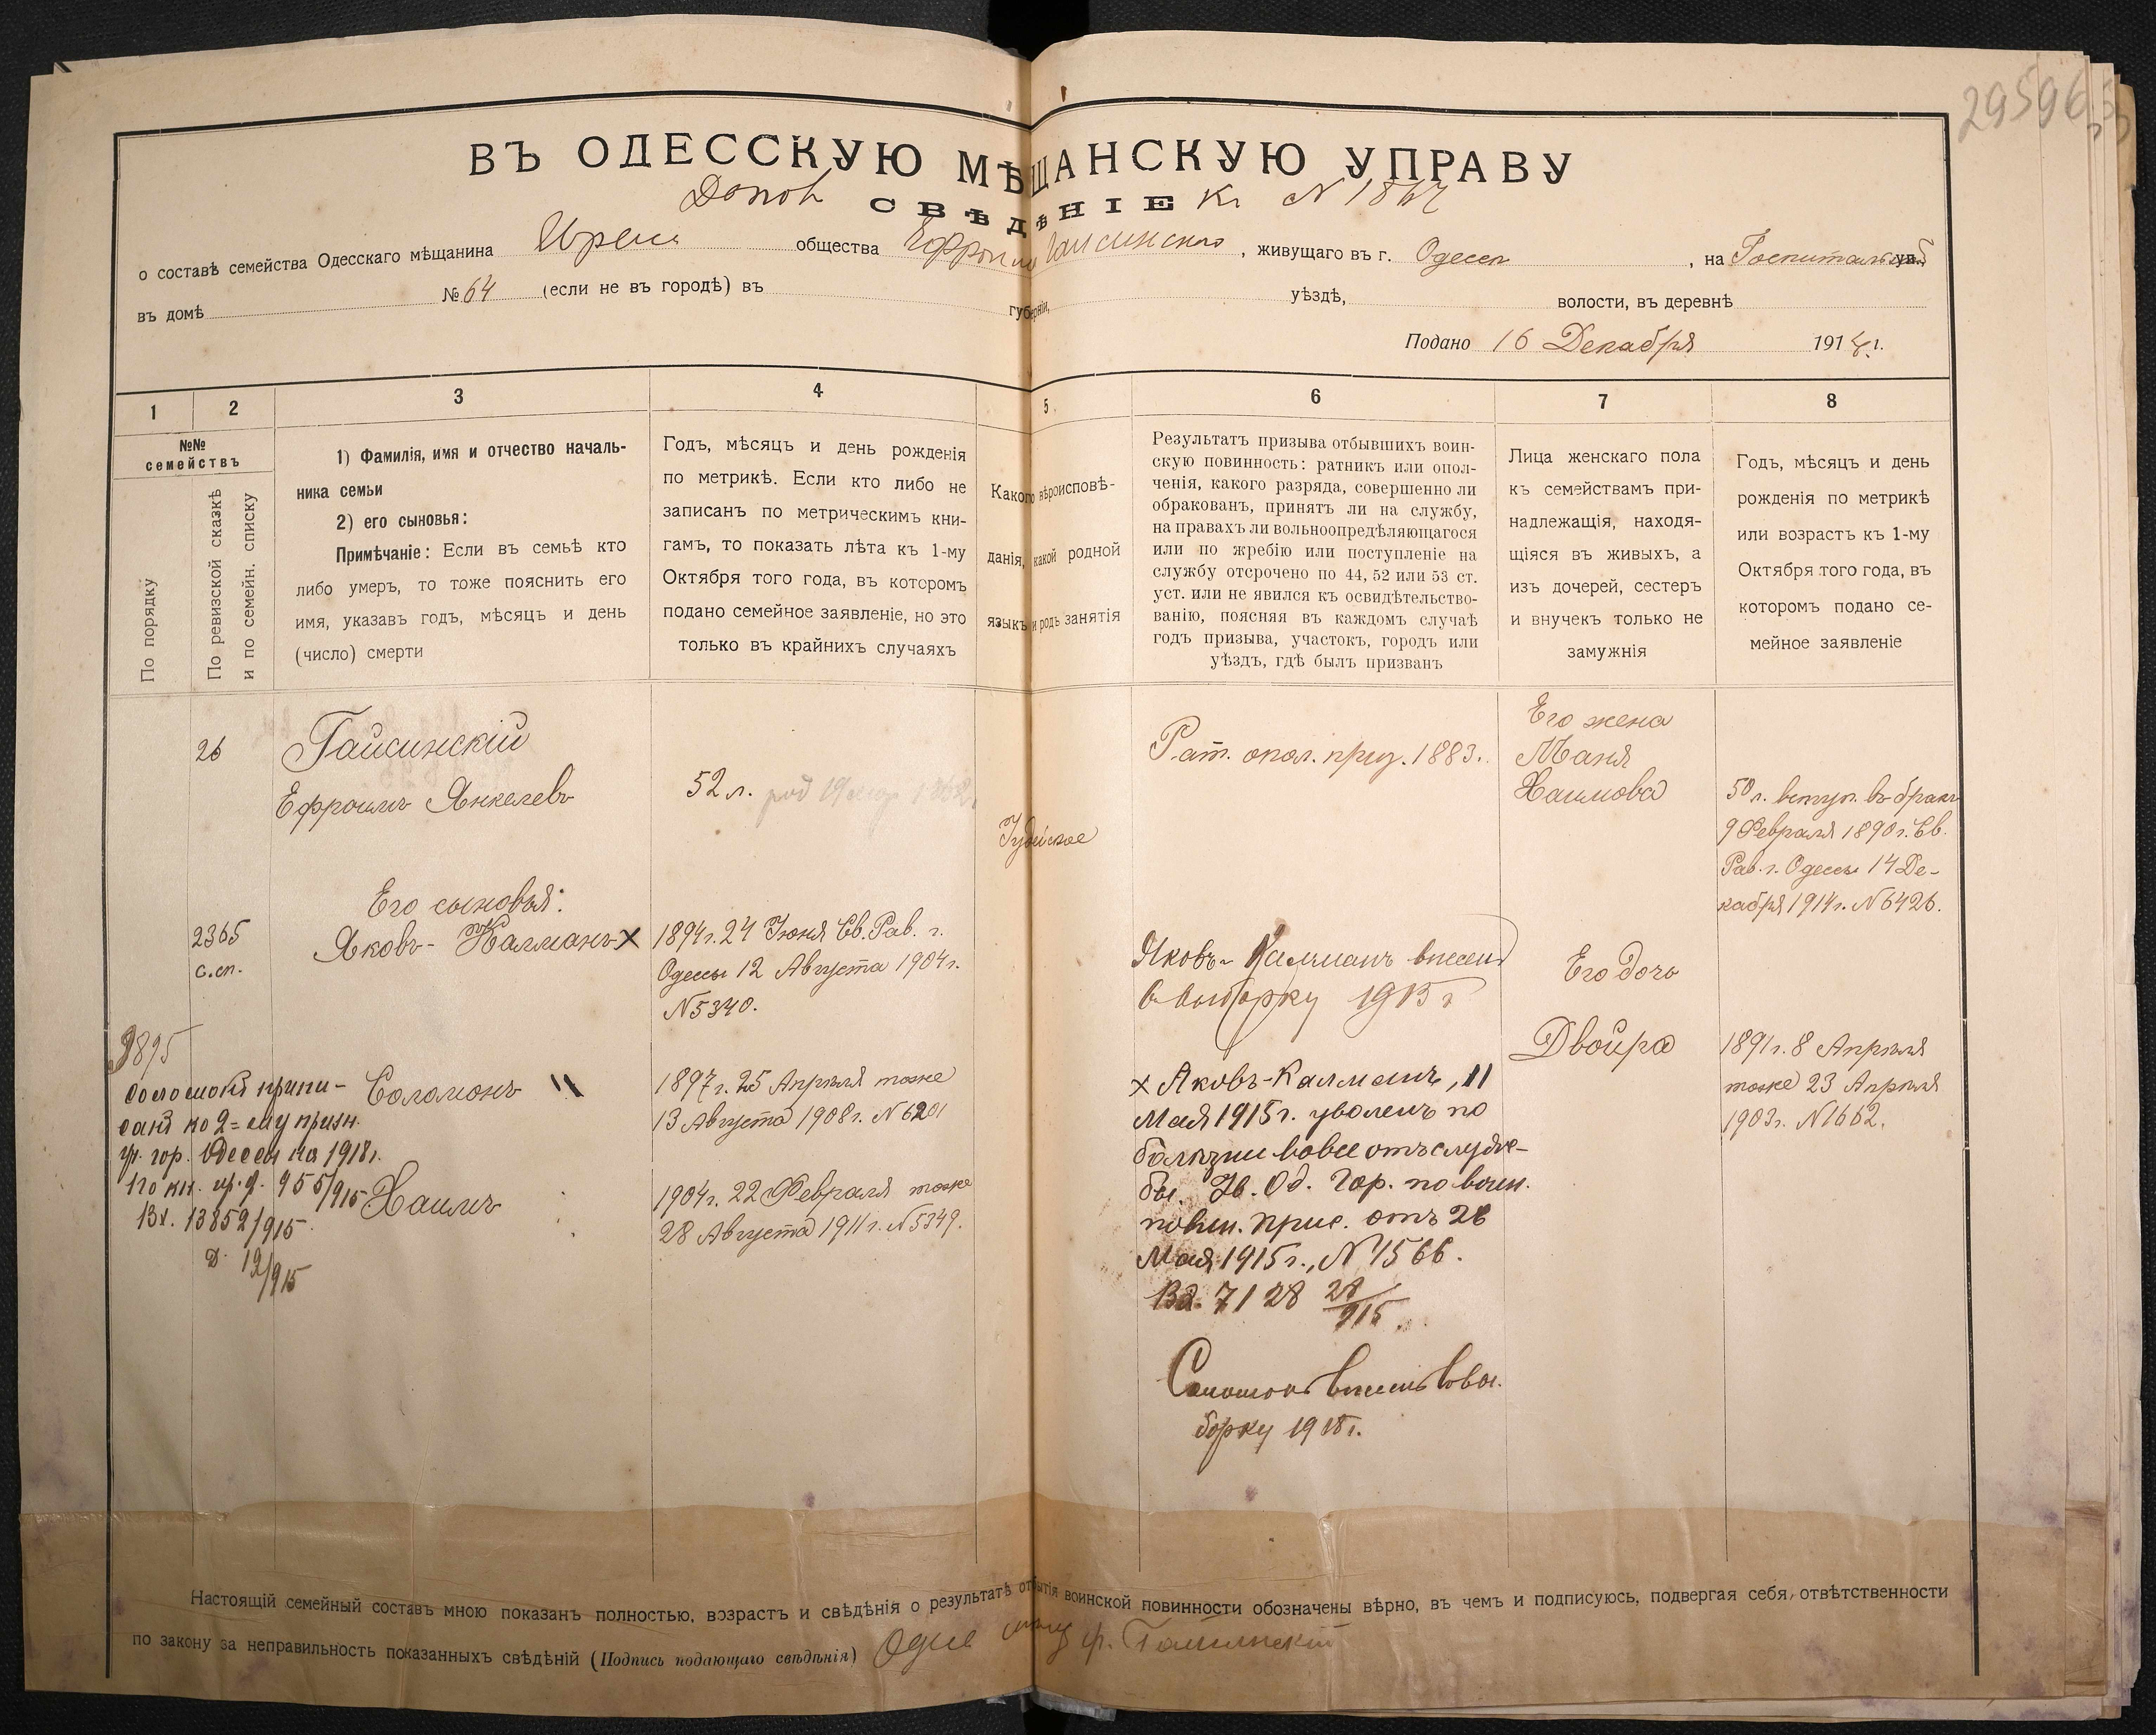 29596
ВЪ ОДЕССКУЮ МѢЩАНСКУЮ УПРАВУ
СВѢДѢНІЕ
о составѣ семейства Одесскаго мѣщанина общества Гайсинского, живущаго въ г. Одессѣ, на Госпитальной ул.,
въ домѣ № 64 (если не въ городѣ) въ губерніи, уѣздѣ, волости, въ деревнѣ
Подано 16 Декабря 1914 г.
1 2 3 4 5 6 7 8
№№
семействъ
По порядку
По ревизской сказкѣ
и по семейн. списку
1) Фамилія, имя и отчество началь-
ника семьи
2) его сыновья:
Примѣчаніе: Если въ семьѣ кто
либо умеръ, то тоже пояснить его
имя, указавъ годъ, мѣсяцъ и день
(число) смерти
Годъ, мѣсяцъ и день рожденія
по метрикѣ. Если кто либо не
записанъ по метрическимъ кни-
гамъ, то показать лѣта къ 1-му
Октября того года, въ которомъ
подано семейное заявленіе, но это
только въ крайнихъ случаяхъ
Какого вѣроисповѣ-
данія, какой родной
языкъ и родъ занятія
Результатъ призыва отбывшихъ воин-
скую повинность: ратникъ или опол-
ченія, какого разряда, совершенно ли
обракованъ, принятъ ли на службу,
на правахъ ли вольноопредѣляющагося
или по жребію или поступленіе на
службу отсрочено по 44, 52 или 53 ст.
уст. или не явился къ освидѣтельство-
ванію, поясняя въ каждомъ случаѣ
годъ призыва, участокъ, городъ или
уѣздъ, гдѣ былъ призванъ
Лица женскаго пола
къ семействамъ при-
надлежащія, находя-
щіяся въ живыхъ, а
изъ дочерей, сестеръ
и внучекъ только не
замужнія
Годъ, мѣсяцъ и день
рожденія по метрикѣ
или возрастъ къ 1-му
Октября того года, въ
которомъ подано се-
мейное заявленіе
26
Гайсинскій
Ефроимъ Янкелевъ
52 л.
Іудейское
Рат. опол. приз. 1883.
Его жена
Маня
Хаимова
50 л. вступ. въ бракъ
9 Февраля 1890 г. Св.
Рав. г. Одессы 14 Де-
кабря 1914 г. N 6426.
Его сыновья:
2365
с.сп.
Яковъ-Калманъ х
1894 г. 24 Іюня Св. Рав. г.
Одессы 12 Августа 1904 г.
N 5340.
Яковъ-Калманъ внесенъ
въ выборку 1915 г
Его дочь
Двойра
1891 г. 8 Апрѣля
тоже 23 Апрѣля
1903 г. N 1662.
Соломонъ "
1897 г. 25 Апрѣля тоже
13 Августа 1908 г. N 6201
Соломонъ припи-
санъ ко 2=му приз.
уч. гор. Одессы на 1918 г.
По кн. 955/915
Вх. 13852/915
Хаимъ
1904 г. 22 Февраля тоже
28 Августа 1911 г. N 5349.
х Яковъ-Калманъ, 11
Мая 1915 г. уволенъ по
болѣзни вовсе отъ служ-
бы. Ув. Од. Гор. по воин.
повин. прис. отъ 26
Мая 1915 г., N 1566.
Вх. 7128 28/915
Соломонъ внесенъ въ вы-
борку 1918 г.
Настоящій семейный составъ мною показанъ полностью, возрастъ и свѣдѣнія о результатѣ отбытія воинской повинности обозначены вѣрно, въ чемъ и подписуюсь, подвергая себя отвѣтственности
по закону за неправильность показанныхъ свѣдѣній (Подпись подающаго свѣдѣнія) Гайсинскій